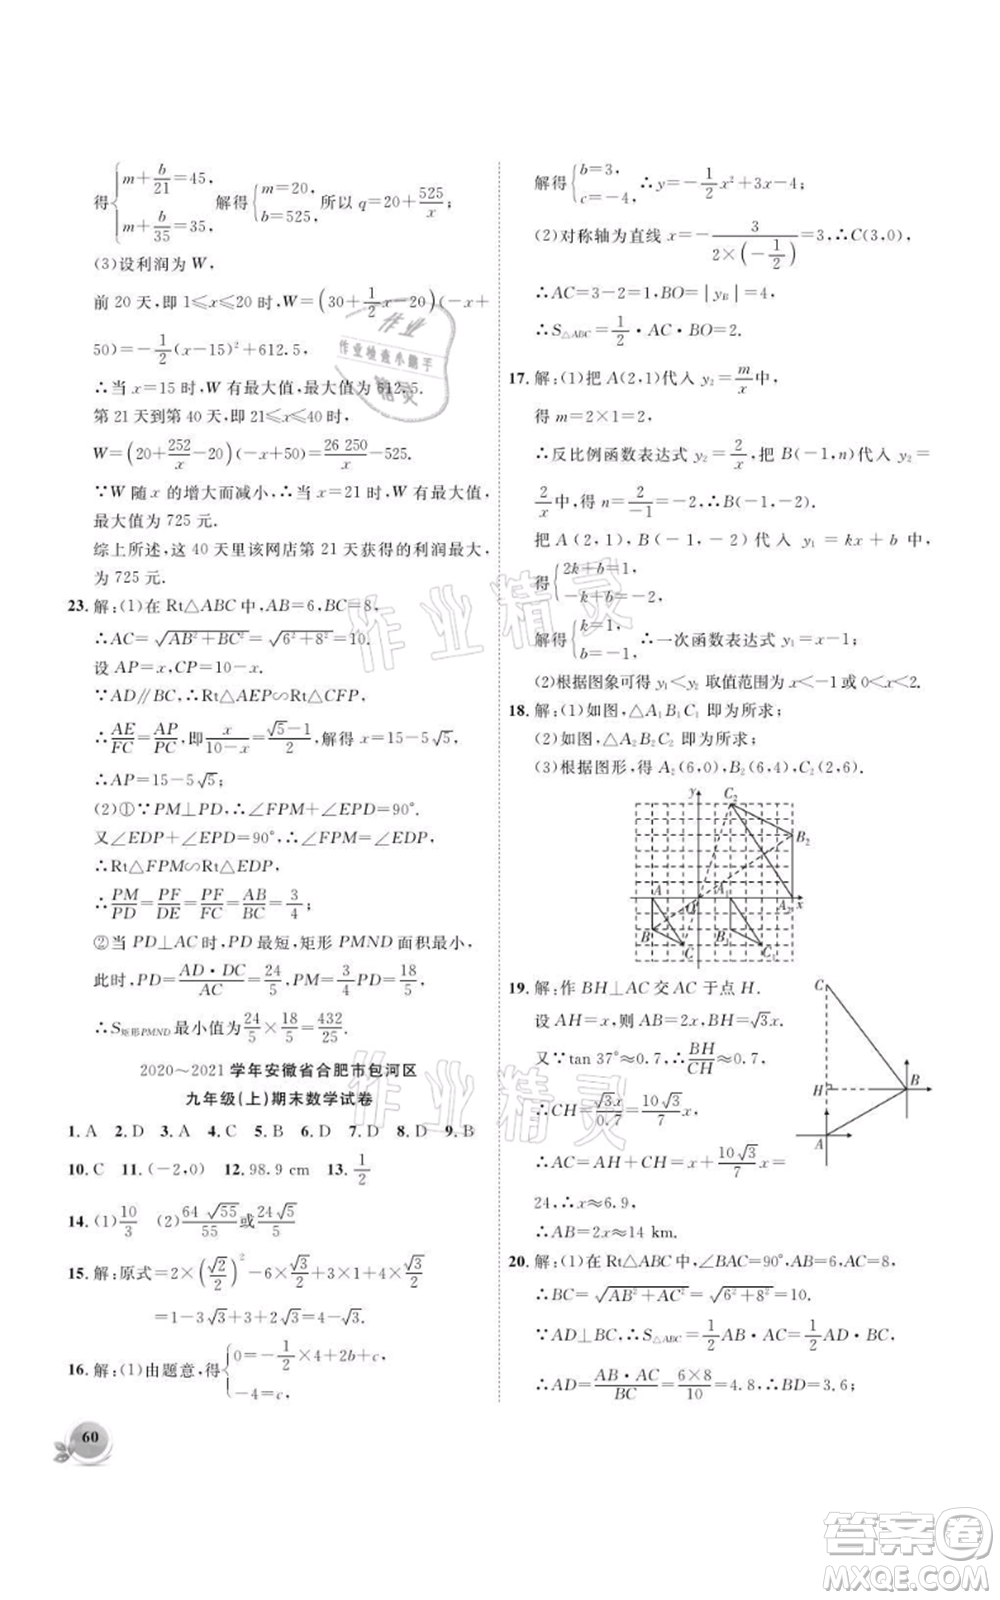 得{m+b/21=45, m+b/35=35, 解得{m=20, b=525, 所以 q=20+525/x;
(3)设利润为 W,
前 20 天,即 1≤x≤20 时,W=(30+1/2x-20)(-x+
50)=-1/2(x-15)²+612.5.
∴当 x=15 时,W 有最大值,最大值为 612.5.
第 21 天到第 40 天,即 21≤x≤40 时,
W=(20+252/x-20)(-x+50)=26 250/x-525.
∵W 随 x 的增大而减小,∴当 x=21 时,W 最大,
最大值为 725 元.
综上所述,这 40 天里该网店第 21 天获得的利润最大,
为 725 元.
23. 解:(1)在 Rt△ABC 中,AB=6,BC=8,
∴AC=√(AB²+BC²)=√(6²+8²)=10.
设 AP=x,CP=10-x.
∵AD∥BC,∴Rt△AEP∽Rt△CFP,
∴AE/FC=AP/PC,即 x/(10-x)=(√5-1)/2,解得 x=15-5√5.
∴AP=15-5√5.
(2)①∵PM⊥PD,∴∠FPM+∠EPD=90°.
又∠EDP+∠EPD=90°,∴∠FPM=∠EDP.
∴Rt△FPM∽Rt△EDP.
∴PM/PD=PF/DE=PF/FC=AB/BC=3/4;
②当 PD⊥AC 时,PD 最短,矩形 PMND 面积最小,
此时,PD=AD·DC/AC=24/5,PM=3/4PD=18/5,
∴S矩形PMND最小值为24/5×18/5=432/25.
2020～2021 学年安徽省合肥市包河区
九年级(上)期末数学试卷
1. A 2. D 3. A 4. C 5. B 6. D 7. D 8. D 9. B
10. C 11. (-2,0) 12. 98.9 cm 13. 1/2
14. (1)10/3 (2)64√55/55或24√5/5
15. 解:原式=2×(√2/2)²-6×√3/2+4×√3/2
=1-3√3+2√3=1-√3.
16. 解:(1)由题意,得{0=-1/2×4+2b+c, -4=c,
60
解得{b=3, c=-4, ∴y=-1/2x²+3x-4;
(2)对称轴为直线 x=-3/(2×(-1/2))=3,∴C(3,0),
∴AC=3-2=1,BO=|yB|=4,
∴S△ABC=1/2·AC·BO=2.
17. 解:(1)把 A(2,1)代入 y₂=m/x中,
得 m=2×1=2,
∴反比例函数表达式 y₂=2/x,把 B(-1,n)代入 y₂=
2/x中,得 n=2/-1=-2,∴B(-1,-2).
把 A(2,1),B(-1,-2)代入 y₁=kx+b 中,
得{2k+b=1, -k+b=-2,
解得{k=1, b=-1, ∴一次函数表达式 y₁=x-1;
(2)根据图象可得 y₁<y₂ 取值范围为 x<-1 或 0<x<2.
18. 解:(1)如图,△A₁B₁C₁ 即为所求;
(2)如图,△A₂B₂C₂ 即为所求;
(3)根据图形,得 A₂(6,0),B₂(6,4),C₂(2,6).
y C₂
B₂
A O A₂ x
B B₁
C C₁
19. 解:作 BH⊥AC 交 AC 于点 H.
设 AH=x,则 AB=2x,BH=√3x.
又∵tan 37°=BH/CH,
∴CH=√3x/0.7=10√3x/7,
∴AC=AH+CH=x+10√3/7x=
24,∴x≈6.9,
∴AB=2x≈14 km.
C
H
B
A
20. 解:(1)在 Rt△ABC 中,∠BAC=90°,AC=8,
∴BC=√(AB²+AC²)=√(6²+8²)=10.
∵AD⊥BC,∴S△ABC=1/2AB·AC=1/2AD·BC,
∴AD=AB·AC/BC=6×8/10=4.8,∴BD=3.6;
作业
作业检查小助手
精灵
作业精灵
作业精灵
答案卷
MXQE.COM